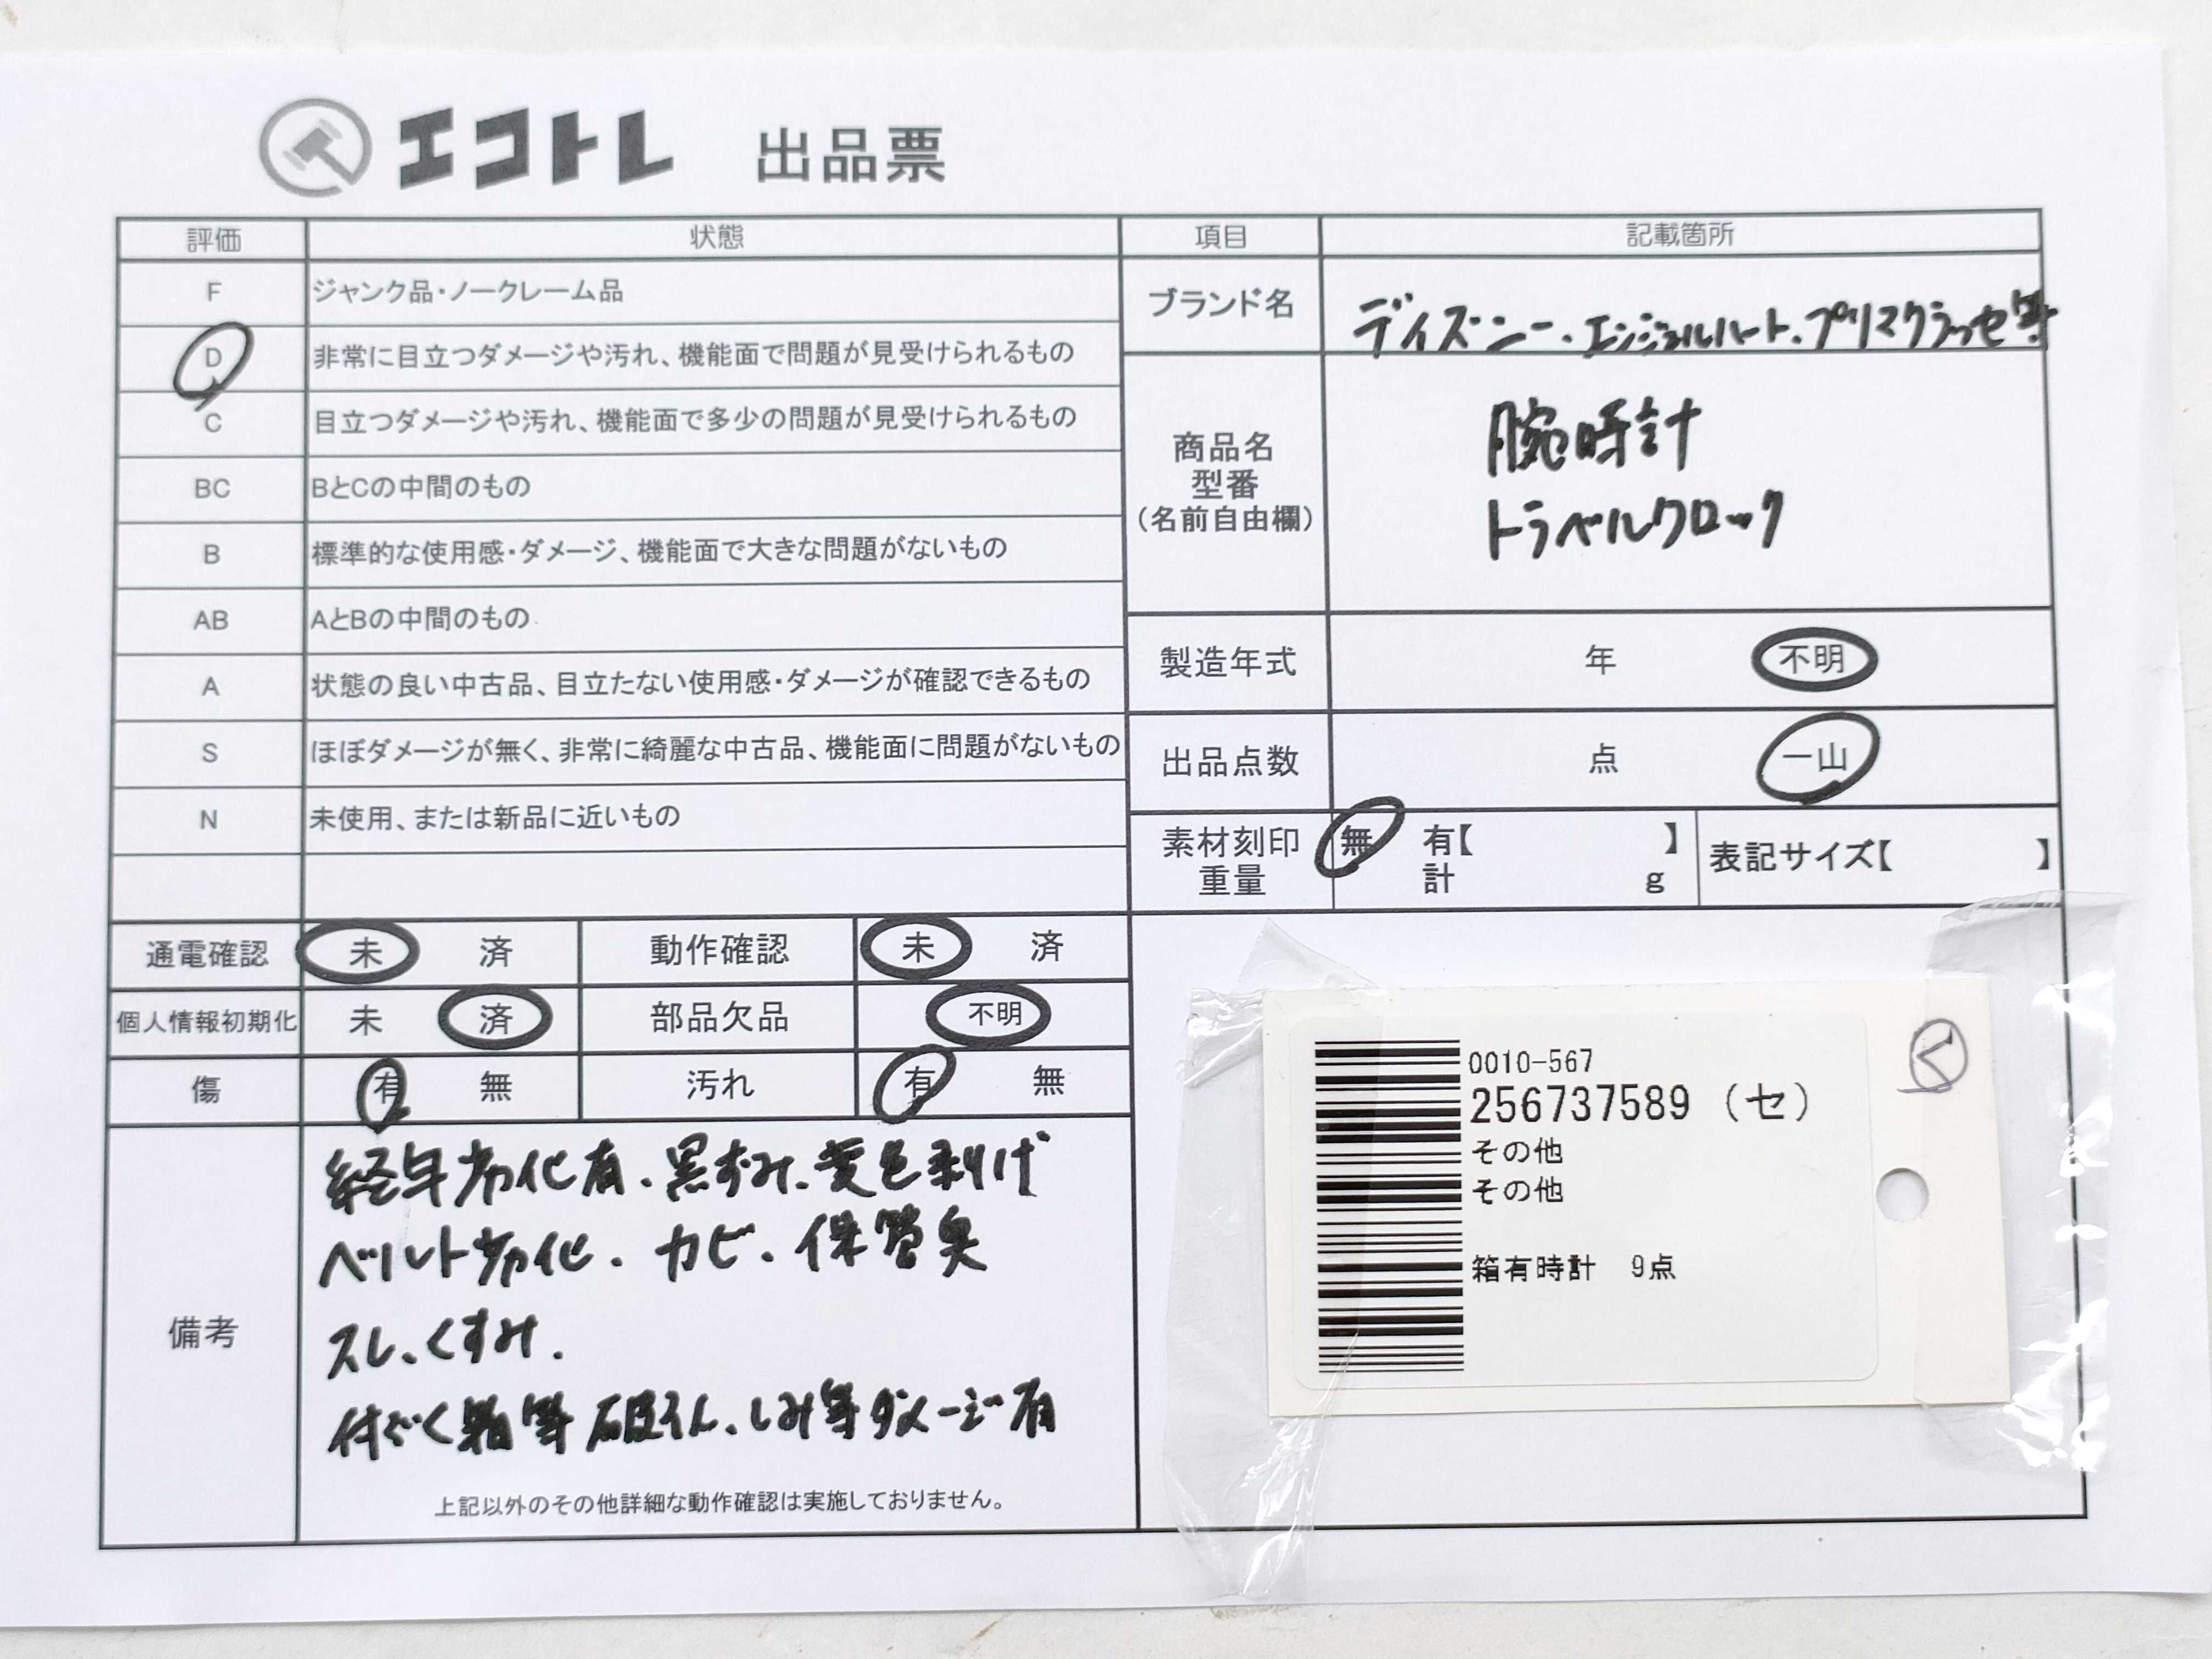 エコトレ 出品票
評価 状態 項目 記載箇所
F ジャンク品・ノークレーム品
D 非常に目立つダメージや汚れ、機能面で問題が見受けられるもの
C 目立つダメージや汚れ、機能面で多少の問題が見受けられるもの
BC BとCの中間のもの
B 標準的な使用感・ダメージ、機能面で大きな問題がないもの
AB AとBの中間のもの
A 状態の良い中古品、目立たない使用感・ダメージが確認できるもの
S ほぼダメージが無く、非常に綺麗な中古品、機能面に問題がないもの
N 未使用、または新品に近いもの
ブランド名 ディズニー・エンジェルハート・プリマクラッセ等
商品名
型番
(名前自由欄)
腕時計
トラベルクロック
製造年式 年 不明
出品点数 点 一山
素材刻印 無 有【 】 表記サイズ【 】
重量 計 g
通電確認 未 済 動作確認 未 済
個人情報初期化 未 済 部品欠品 不明
傷 有 無 汚れ 有 無
備考
経年劣化有、黒ずみ、変色剥げ
ベルト劣化、カビ、保管臭
スレ、くすみ、
付ぞく箱等破そん、しみ等ダメージ有
上記以外のその他詳細な動作確認は実施しておりません。
0010-567
256737589 (セ)
その他
その他
箱有時計 9点
く